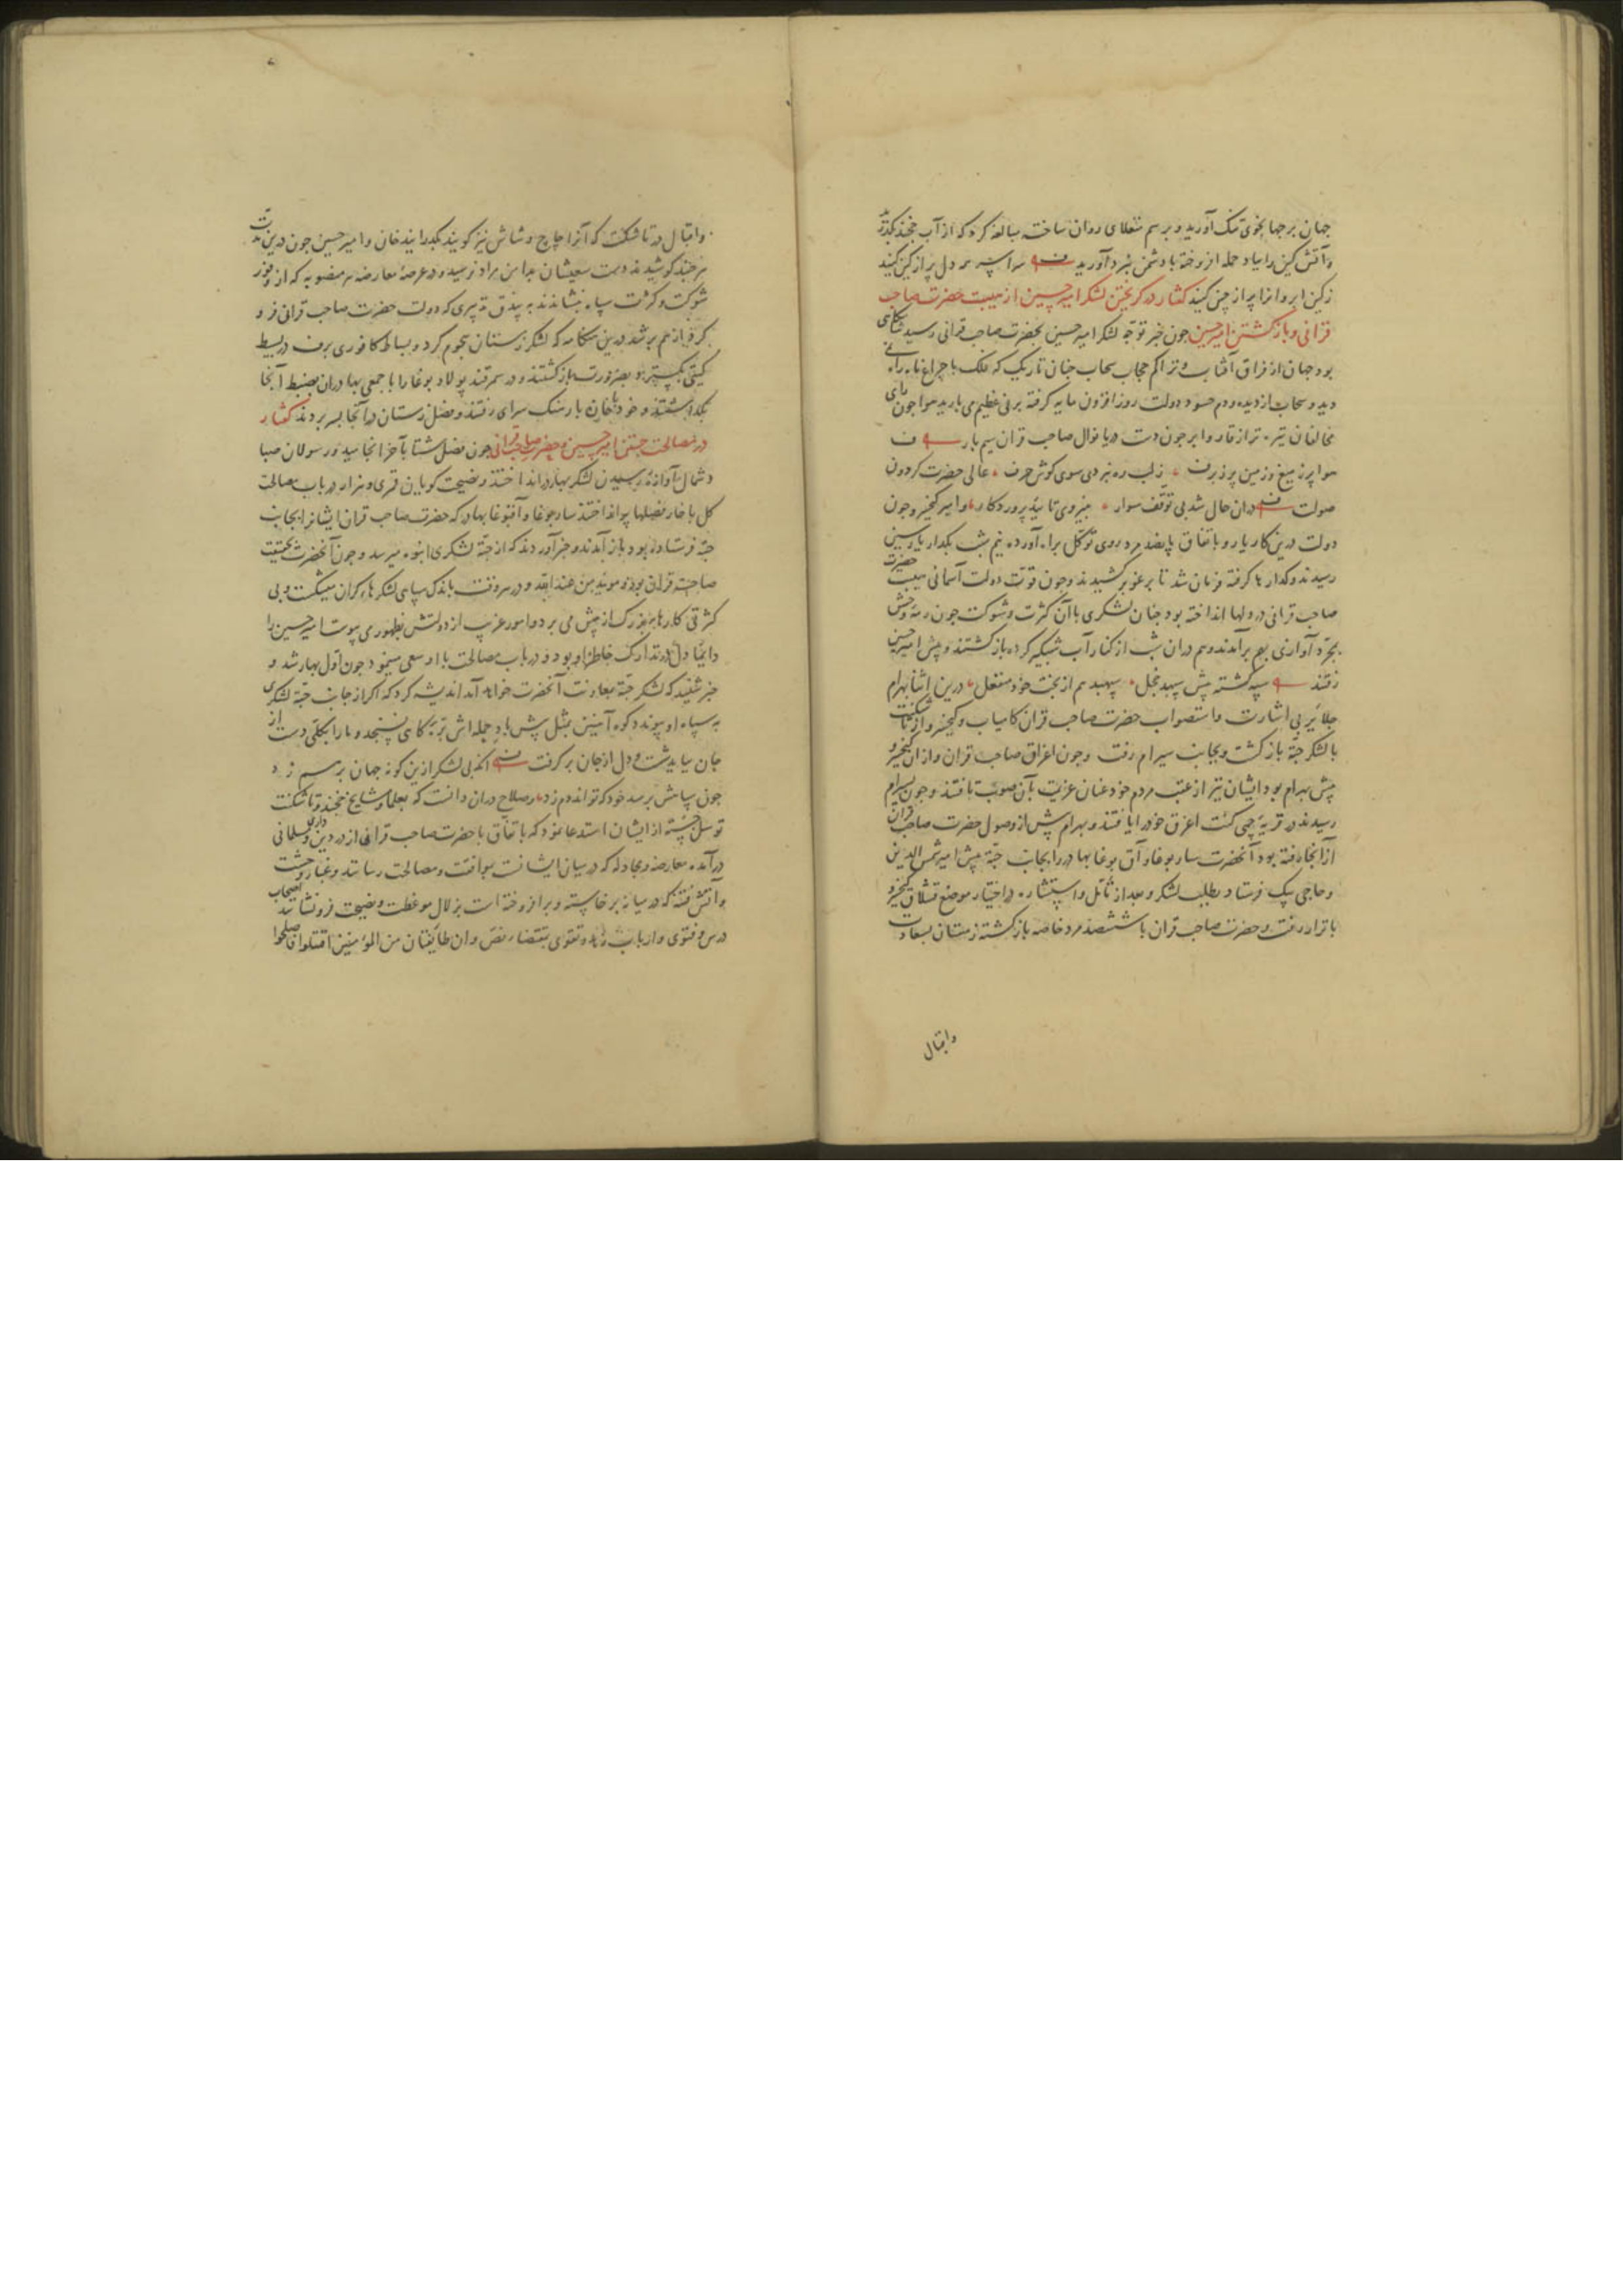 جهان بر جهانجوی تنک آورید و برسم منغلای روان ساخته مبالغه کرد که از آب خجند بگذرید
و آتش کین را بباد حمله افروخته با دشمن نبرد آورید سراسر همه دل پر از کین کنید
زکین ابروانرا پر از چین کنید کفتار در کریختن لشکر امیر حسین از هیبت حضرت صاحب
قرانی و بازکشتن امیر حسین جون خبر توجه لشکر امیر حسین بحضرت صاحب قرانی رسید
بود جهان از فراق آفتاب و تراکم حجاب سحاب جنان تاریک که فلک با جراغ ماه راه
دیده و سحاب از دیده و دم حسود دولت روزافزون مایه کرفته برفی عظیم می بارید هوا جون رای
مخالفان تیره تر از قار و ابر جون دست دریا نوال صاحب قران سیم بار
هوا پر ز میغ و زمین پر ز برف عالی حضرت کردون
صولت دران حال شد بی توقف سوار بنیروی تایید پروردکار و امیر کیخسرو جون
دولت درین کار یار و باتفاق با پانصد مرد روی توکل براه آورده نیم شب بکدار
رسیدند و کدارها کرفته فرمان شد تا برغو برکشیدند و جون قوت دولت آسمانی هیبت حضرت
صاحب قرانی در دلها انداخته بود جنان لشکری با آن کثرت و شوکت جون رمه وحش
بمجرد آوازی بهم برآمدند و هم دران شب از کنار آب شبکیر کرده بازکشتند و پیش امیر حسین
رفتند سپه کشته پیش سپهبد خجل سپهبد هم از بخت خود منفعل درین اثنا بهرام
جلایر بی اشارت و استصواب حضرت صاحب قران کامیاب و کیخسرو از تاشکنت
با لشکر جته بازکشت و بجانب سیرام رفت و جون اغراق صاحب قران و از ان کیخسرو
پیش بهرام بود ایشان نیز از عقب مردم خود عنان عزیمت بآن صوب تافتند و جون بسیرام
رسیدند در قریه جمی کنت اغرق خود را یافتند و بهرام پیش از وصول حضرت صاحب قران
از آنجا رفته بود آنحضرت ساربوغا و آق بوغا بهادر را بجانب جته پیش امیر شمس الدین
و حاجی بیک فرستاد بطلب لشکر و بعد از تامل و استشاره در اختیار موضع قشلاق کیخسرو
باترار رفت و حضرت صاحب قران با ششصد مرد خاصه بازکشته زمستان بسعادت
واقبال
و اقبال در تاشکنت که آنرا چاچ و شاش نیز کویند بکذرانید خان و امیر حسین جون درین مدت
هر جند کوشیدند دست سعیشان بدامن مراد نرسید و در عرصه معارضه هر منصوبه که از وفور
شوکت و کثرت سپاه بنشاندند به بیذق تدبیری که دولت حضرت صاحب قرانی فرو
کرد باز هم بر شد درین هنکامه که لشکر زمستان هجوم کرد و بساط کافوری برف در بسیط
کیتی بکسترد بضرورت بازکشتند و در سمرقند پولاد بوغا را با جمعی بهادران بضبط آنجا
بکذاشتند و خود با خان بارسنک سرای رفتند و فصل زمستان در آنجا بسر بردند کفتار
در مصالحت جستن امیر حسین و حضرت صاحب قرانی جون فصل شتا بآخر انجامید و رسولان صبا
و شمال آوازه رسیدن لشکر بهار در انداختند و نصیحت کویان قمری و هزار در باب مصالحت
کل با خار فصلها پرداختند ساربوغا و آقبوغا بهادر که حضرت صاحب قران ایشانرا بجانب
جته فرستاده بود باز آمدند و خبر آوردند که از جته لشکری انبوه میرسد و جون آنحضرت بحقیقت
صاحب قران بود و موید من عندالله و در هر وقت باندک سپاهی لشکرهاء کران میشکست و بی
کثرتی کارهاء بزرک از پیش می برد و امور غریب از دولتش بظهور می پیوست امیر حسین را
دایما دل در تدارک خاطر او بود و در باب مصالحت با او سعی مینمود جون اول بهار شد و
خبر شنید که لشکر جته بمعاونت آنحضرت خواهد آمد اندیشه کرد که اکر از جانب جته لشکری
به سپاه او پیوندد کوه آهنین بمثل پیش باد حمله اش پره کاهی نسنجد و ما را بکلی دست از
جان بباید شست و دل از جان برکرفت انک بی لشکر ازین کونه جهان بر هم زد
جون سپاهش برسد خود که تواند دم زد صلاح دران دانست که بعلما و مشایخ خجند و تاشکنت
توسل جسته از ایشان استدعا نمود که باتفاق با حضرت صاحب قرانی از در دین داری و مسلمانی
درآمده معارضه و مجادله که در میان ایشانست بموافقت و مصالحت رسانند و غبار وحشت
و آتش فتنه که در میانه برخاسته و برافروخته است بزلال موعظت و نصیحت فرونشانند اصحاب
درس و فتوی و ارباب زهد و تقوی بمقتضاء نص وان طایفتان من المؤمنین اقتتلوا فاصلحوا